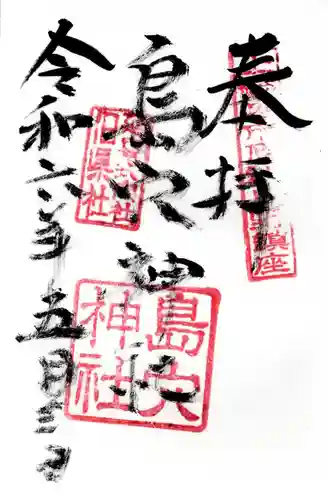 奉拝
鎮座
島穴神社
島穴
神社
県社
令和六年五月三日